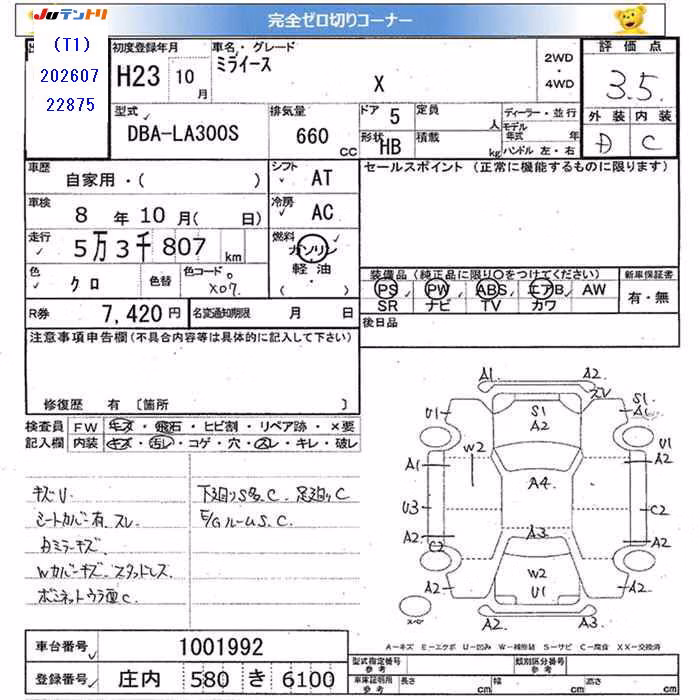 JUテントリ
完全ゼロ切りコーナー
(T1)
202607
22875
初度登録年月
H23 10月
車名・グレード
ミライース
X
2WD
・
4WD
評価点
3.5
外装 内装
D C
型式
DBA-LA300S
排気量
660 CC
ドア 5
定員 人
形状 HB
積載 kg
ディーラー・並行
モデル年式 年
ハンドル 左・右
車歴
自家用・( )
シフト
AT
車検
8年10月( 日)
冷房
AC
走行
5万3千807km
燃料
ガソリン
軽油
・
色
クロ
色替
色コード
X07
R券
7,420円
名変通知期限 月 日
セールスポイント (正常に機能するものに限ります)
装備品(純正品に限り○をつけてください)
PS PW ABS エアB AW
SR ナビ TV カワ
新車保証書
有・無
後日品
注意事項申告欄(不具合内容等は具体的に記入して下さい)
修復歴 有 〔箇所 〕
検査員記入欄
FW キズ・飛石・ヒビ割・リペア跡・×要
内装 キズ・汚レ・コゲ・穴・スレ・キレ・破レ
キズU
シートカバー有.スレ
Wカバーキズ.スタッドレス
下廻りS多.C.足廻りC
E/GルームS.C.
A1 A2
U1 S1 A2
S1
U1
A1 W2 A4 A2
U3 C2
A2 C2 A3 A2
A2 W2 U1 A2
A2 A3
スペア
A-キズ E-エクボ U-凹み W-補修跡 S-サビ C-腐食 XX-交換済
車台番号
1001992
登録番号
庄内 580 き 6100
型式指定番号
参考
類別区分番号
参考
車庫証明用
参考
長さ cm 幅 cm 高さ cm